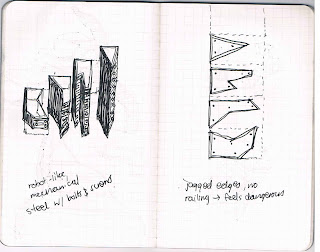 robot-like
mechanical
steel w/ bolts & screws
jagged edges, no
railing → feels dangerous